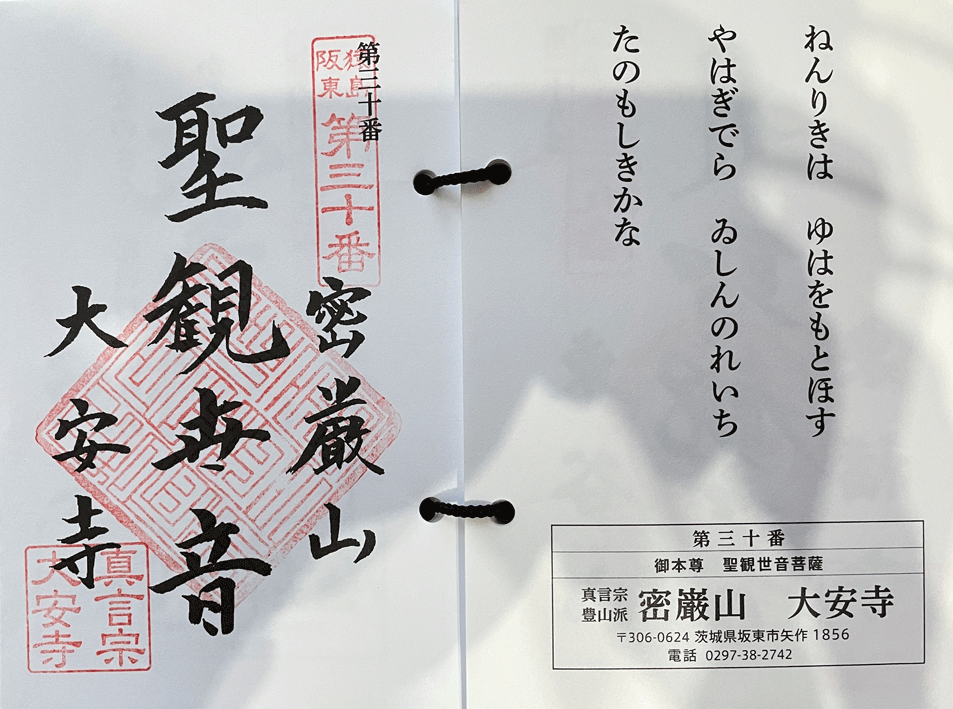 ねんりきは　ゆはをもとほす
やはぎでら　ゐしんのれいち
たのもしきかな
第三十番
御本尊　聖観世音菩薩
真言宗
豊山派
密厳山　大安寺
〒306-0624 茨城県坂東市矢作 1856
電話 0297-38-2742
第三十番
猿島
阪東
第三十番
密厳山
聖観世音
大安寺
真言宗
大安寺